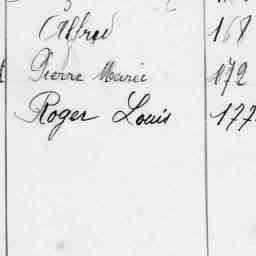 Alfred 168
Pierre Marie 172
Roger Louis 177